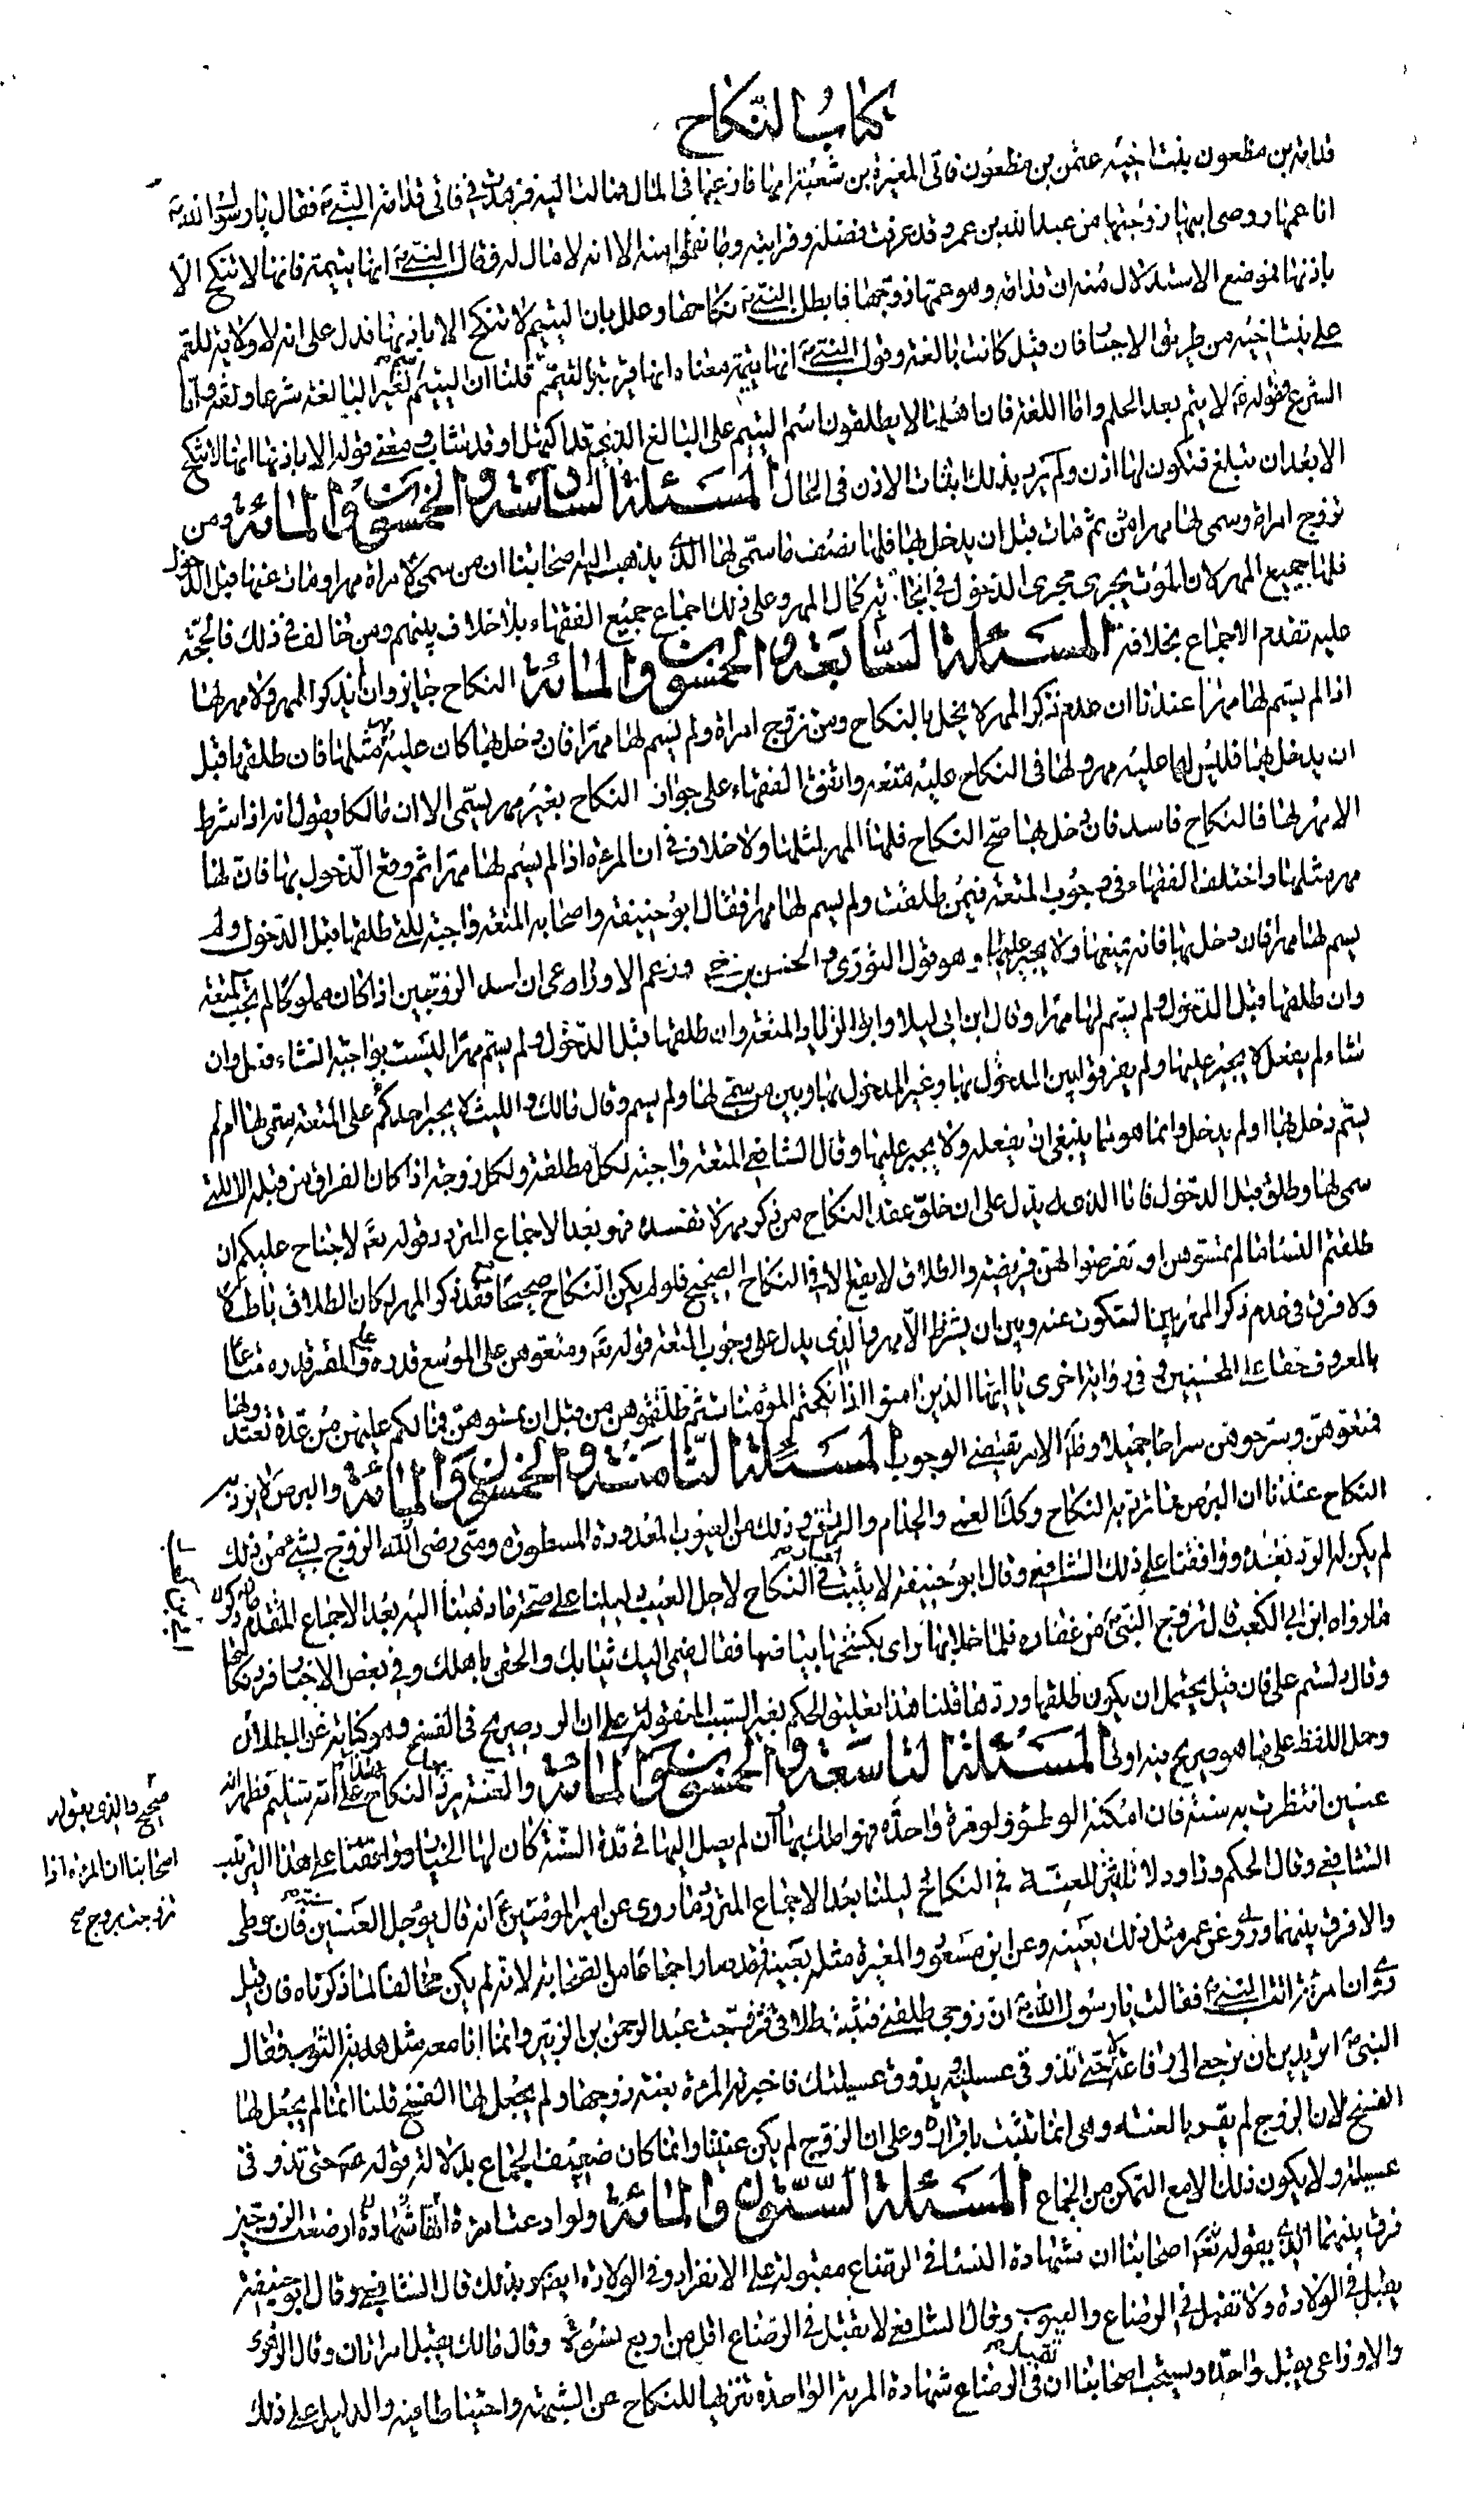 كتاب النكاح
قدامة بن مظعون بنت اخيه عثمن بن مظعون فاتى المغيرة بن شعبة امها فارغبها فى المال فمالت اليه فزهدت في فاتى قدامة النبي ص فقال يا رسول الله ص
انا عمها ووصى ابيها زوجتها من عبد الله بن عمر وقد عرفت فضله وقرابته وما نقموا منه الا انه لا مال له فقال النبي ص انها يتيمة فانها لا تنكح الا
باذنها فموضع الاستدلال منه ان قدامة وهو عمها زوجها فابطل النبي ص نكاحها وعلل بان اليتيم لا تنكح الا باذنها فدل على انه لا ولاية للعم
على بنت اخيه من طريق الاجبار فان قيل كانت بالغة وقول النبي ص انها يتيمة معناه انها قريبة اليتم قلنا ان اليتيم اسم لغير البالغة شرعا ولغة واما
الشرع فقوله ع لا يتم بعد الحلم واما اللغة فان اهلها لا يطلقون اسم اليتيم على البالغ الذي قد اكتمل او قد شاب ومعنى قوله الا باذنها انها لا تنكح
الا بعد ان تبلغ فتكون لها اذن ولم يرد بذلك اثبات الاذن فى الحال المسئلة السادسة والخمسون والمائة ومن
تزوج امراة وسمى لها مهرا ثم مات قبل ان يدخل بها فلها نصف ما سمى لها الذي يذهب اليه اصحابنا ان من سمى لامراة مهرا ومات عنها قبل الدخول
فلها جميع المهر لان الموت يجرى مجرى الدخول في ايجابه كمال المهر وعلى ذلك اجماع جميع الفقهاء بلا خلاف بينهم ومن خالف فى ذلك فالحجة
عليه تقدم الاجماع بخلافه المسئلة السابعة والخمسون والمائة النكاح جايز وان لم يذكر المهر ولا مهر لها
اذا لم يسم لها مهرا عندنا ان عدم ذكر المهر لا يخل بالنكاح ومن تزوج امراة ولم يسم لها مهرا فان دخل بها كان عليه مهر مثلها فان طلقها قبل
ان يدخل بها فليس لها عليه مهر ولها فى النكاح عليه متعة واتفق الفقهاء على جواز النكاح بغير مهر يسمى الا ان مالكا يقول انه اذا شرط
الا مهر لها فالنكاح فاسد فان دخل بها صح النكاح فلها المهر لمثلها ولا خلاف فى ان المرءة اذا لم يسم لها مهرا ثم وقع الدخول بها فان لها
مهر مثلها واختلف الفقهاء فى وجوب المتعة فيمن طلقت ولم يسم لها مهرا فقال ابو حنيفة واصحابه المتعة واجبة للتي طلقها قبل الدخول ولم
يسم لها مهرا فان دخل بها فانه يمتعها ولا يجبر عليها وهو قول الثوري والحسن بن حي وزعم الاوزاعى ان احد الزوجين اذا كان مملوكا لم تجب المتعة
وان طلقها قبل الدخول ولم يسم لها مهرا وقال ابن ابى ليلا وابو الزناد المتعة وان طلقها قبل الدخول ولم يسم مهرا ليست بواجبة ان شاء فعل وان
شاء لم يفعل لا يجبر عليها ولم يفرقوا بين المدخول بها وغير المدخول بها وبين من سمى لها ولم يسم وقال مالك والليث لا يجبر احدكم على المتعة سمى لها ام لم
يسم دخل بها او لم يدخل وانما هو مما ينبغي ان يفعله ولا يجبر عليها وقال الشافعي المتعة واجبة لكل مطلقة ولكل زوجة اذا كان الفراق من قبله الا التي
سمى لها وطلق قبل الدخول فاما الذى يدل على ان خلو عقد النكاح من ذكر مهر لا تفسده فهو بعد الاجماع المتردد قوله تع لا جناح عليكم ان
طلقتم النساء ما لم تمسوهن او تفرضوا لهن فريضة والطلاق لا يقع الا فى النكاح الصحيح فلو لم يكن النكاح صحيحا مع فقد ذكر المهر لم كان الطلاق باطلا
ولا فرق فى عدم ذكر المهر بين السكوت عنه وبين ان يشترط الا مهر والذى يدل على وجوب المتعة قوله تع ومتعوهن على الموسع قدره وعلى المقتر قدره متاعا
بالمعروف حقا على المحسنين وفى اية اخرى يا ايها الذين امنوا اذا نكحتم المؤمنات ثم طلقتموهن من قبل ان تمسوهن فما لكم عليهن من عدة تعتدونها
فمتعوهن وسرحوهن سراحا جميلا وظاهر الامر يقتضى الوجوب المسئلة الثامنة والخمسون والمائة والبرص لا يرد به
النكاح عندنا ان البرص مما ترد به النكاح وكذلك العمى والجذام والرتق وذلك من العيوب المعدودة المسطورة ومتى رضى الزوج بشيء من ذلك
لم يكن له الرد بعده ووافقنا على ذلك الشافعي وقال ابو حنيفة لا يثبت فى النكاح خيار لاجل العيب دليلنا على صحة ما ذهبنا اليه بعد الاجماع المتقدم ذكره
ما رواه ابن ابى الكعب قال تزوج النبي ص من غفاره فلما خلا بها راى بكشحها بياضا فقال ضمى اليك ثيابك والحقى باهلك وفي بعض الاخبار فردها
وقال دلستم على فان قيل يحتمل ان يكون طلقها وردها قلنا هذا تعليق الحكم بغير السبب المنقول على ان الرد صريح فى الفسخ وهو كناية عن الطلاق
وحمل اللفظ على ما هو صريح فيه اولى المسئلة التاسعة والخمسون والمائة والعنة يرد بها النكاح
عنين انتظرت به سنة فان امكنه الوطؤ ولو مرة واحدة فهو املك بها وان لم يصل اليها فى مدة السنة كان لها الخيار ووافقنا على هذا الترتيب
الشافعي وقال الحكم وداود لا تاثير للعنة فى النكاح دليلنا بعد الاجماع المتردد ما روى عن امير المؤمنين ع انه قال يؤجل العنين سنة فان وطى
والا فرق بينهما وروى عن عمر مثل ذلك بعينه وعن ابن مسعود والمغيرة مثله بعينه فقد صار اجماعا من الصحابة لانه لم يكن مخالف لما ذكرناه فان قيل
روى ان امرءة اتت النبي ص فقالت يا رسول الله ص ان زوجى طلقنى فبت طلاقى فتزوجت عبد الرحمن بن الزبير وانما معه مثل هدبة الثوب فقال
النبي ص اتريدين ان ترجعى الى رفاعة لا حتى تذوقى عسيلته ويذوق عسيلتك فاخبرته المرءة بعنة زوجها ولم يجعل لها الفسخ قلنا انما لم يجعل لها
الفسخ لان الزوج لم يقر بالعنة وهى انما تثبت باقراره وعلى ان الزوج لم يكن عنينا وانما كان ضعيف الجماع بدلالة قوله ص حتى تذوقى
عسيلته ولا يكون ذلك الا مع التمكن من الجماع المسئلة الستون والمائة ولو ادعت امرءة انها ارضعت الزوجين
فرق بينهما الذي يقوله اصحابنا ان شهادة النساء فى الرضاع مقبولة على الانفراد وفى الولادة ايضا وبذلك قال الشافعي وقال ابو حنيفة
يقبل فى الولادة ولا تقبل فى الرضاع والعيوب وقال الشافعي لا يقبل فى الرضاع اقل من اربع نسوة وقال مالك يقبل امراتان وقال الزهرى
والاوزاعى يقبل واحدة ويستحب اصحابنا ان تقبل فى الرضاع شهادة المرءة الواحدة تنزيها للنكاح عن الشبهة واحتياطا فيه والدليل على ذلك
صحيح والذى يقوله
اصحابنا ان المرءة اذا
تزوجت بزوج